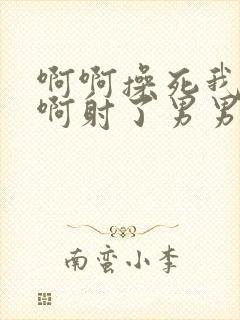 啊啊操死我
啊射了男男
南蛮小李